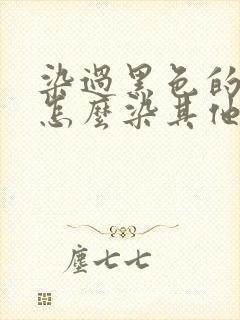 染過黑色的
怎麼染其他
塵七七